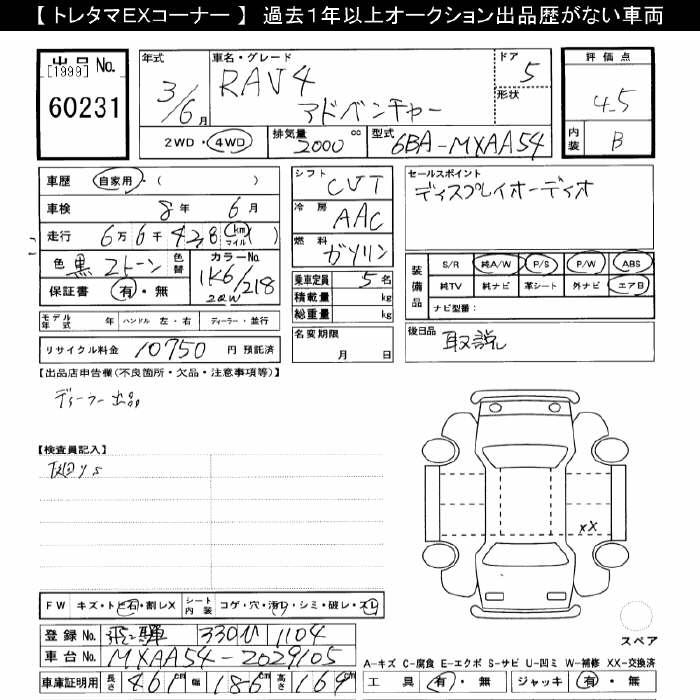 【 トレタマEXコーナー 】 過去1年以上オークション出品歴がない車両
出品 No.
[1999]
60231
年式
3/6月
車名・グレード
RAV4
アドベンチャー
ドア
5
形状
評価点
4.5
内装
B
2WD・4WD
排気量 2000 cc
型式 6BA-MXAA54
車歴 自家用・( )
車検 8年 6月
走行 6万6千428 (km マイル)( )
色 黒 2トーン 色替 カラーNo.
1K6/218
2QW
保証書 有・無
シフト CVT
冷房 AAC
燃料 ガソリン
乗車定員 5名
積載量 kg
総重量 kg
名変期限
月 日
セールスポイント
ディスプレイオーディオ
装備品
S/R 純A/W P/S P/W ABS
純TV 純ナビ 革シート 外ナビ エアB
ナビ型番:
後日品
取説
モデル年式 年 ハンドル 左・右 ディーラー・並行
リサイクル料金 10750 円 預託済
【出品店申告欄(不良箇所・欠品・注意事項等)】
ディーラー出品
【検査員記入】
XX
FW キズ・トビ石・割レX シート内装 コゲ・穴・汚レ・シミ・破レ・スレ
登録No. 飛騨 330 ひ 1104
車台No. MXAA54-2029105
車庫証明用 長さ 461 cm 幅 186 cm 高さ 164 cm
スペア
A-キズ C-腐食 E-エクボ S-サビ U-凹ミ W-補修 XX-交換済
工具 有・無 ジャッキ 有・無